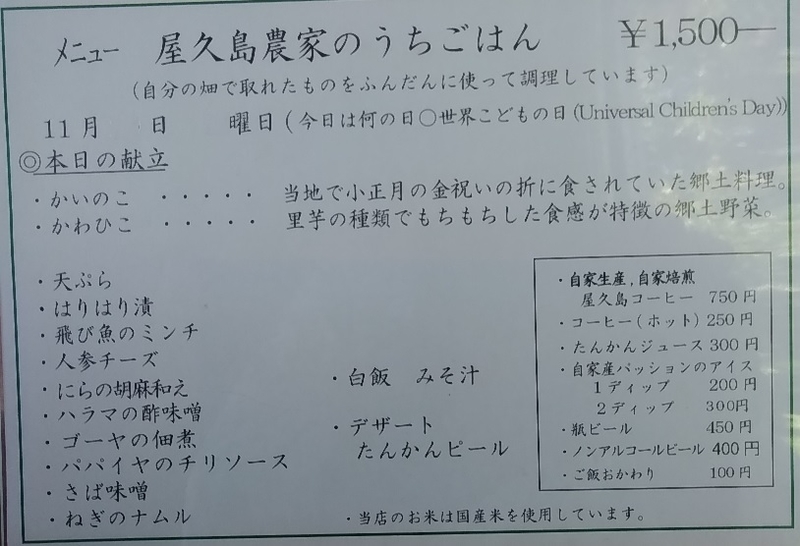 メニュー 屋久島農家のうちごはん ￥1,500―
(自分の畑で取れたものをふんだんに使って調理しています)
11月 日 曜日(今日は何の日〇世界こどもの日(Universal Children's Day))
◎本日の献立
・かいのこ ・・・・・ 当地で小正月の金祝いの折に食されていた郷土料理。
・かわひこ ・・・・・ 里芋の種類でもちもちした食感が特徴の郷土野菜。
・天ぷら
・はりはり漬
・飛び魚のミンチ
・人参チーズ
・にらの胡麻和え
・ハラマの酢味噌
・ゴーヤの佃煮
・パパイヤのチリソース
・さば味噌
・ねぎのナムル
・白飯 みそ汁
・デザート
たんかんピール
・自家生産,自家焙煎
屋久島コーヒー 750円
・コーヒー(ホット) 250円
・たんかんジュース 300円
・自家産パッションのアイス
1ディップ 200円
2ディップ 300円
・瓶ビール 450円
・ノンアルコールビール 400円
・ご飯おかわり 100円
・当店のお米は国産米を使用しています。